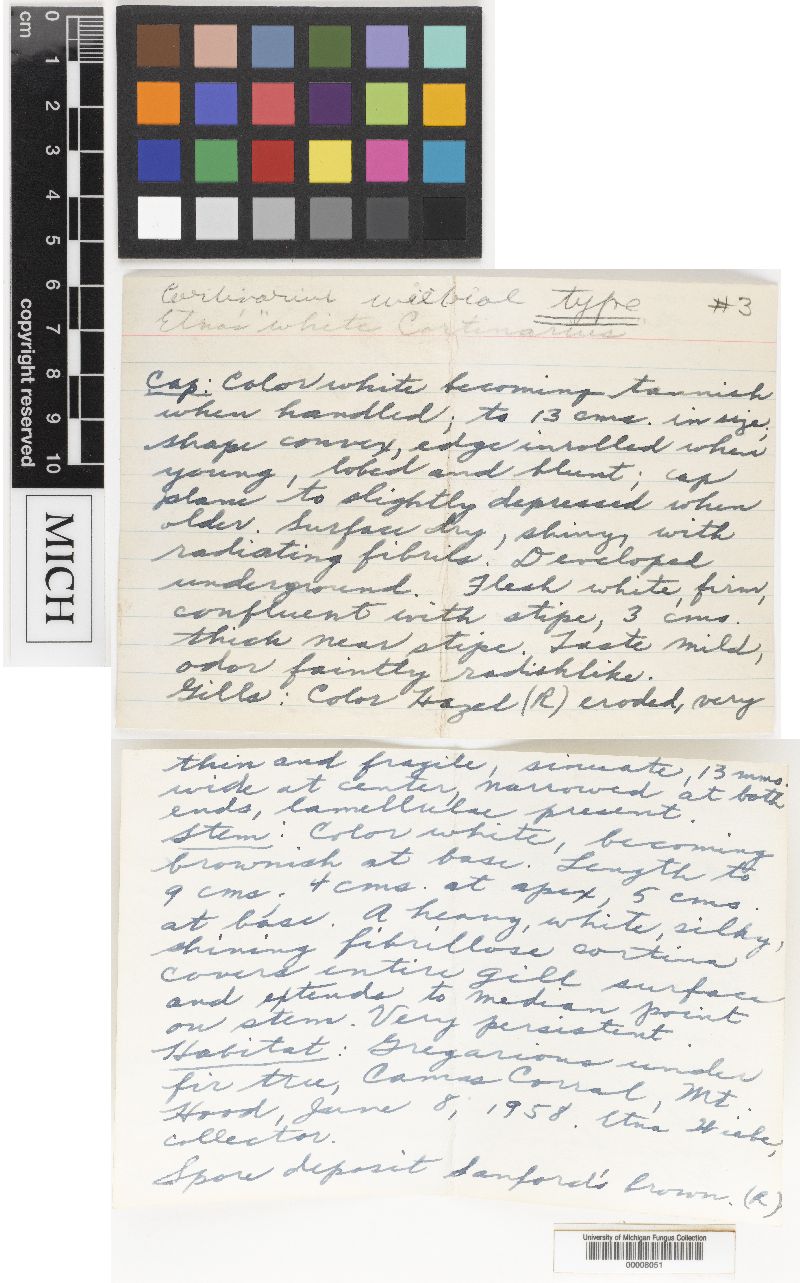 cm
0 1 2 3 4 5 6 7 8 9 10
copyright reserved
MICH
Cortinarius wiebeae type #3
Etna's "white Cortinarius"
Cap: Color white becoming tannish
when handled; to 13 cms. in size,
shape convex, edge inrolled when
young, lobed and blunt; cap
plane to slightly depressed when
older. Surface dry, shiny, with
radiating fibrils. Developed
underground. Flesh white, firm,
confluent with stipe, 3 cms.
thick near stipe. Taste mild,
odor faintly radishlike.
Gills: Color Hazel (R) eroded, very
thin and fragile, sinuate, 13 mms.
wide at center, narrowed at both
ends, lamellulae present.
Stem: Color white, becoming
brownish at base. Length to
9 cms, 4 cms. at apex, 5 cms.
at base. A heavy, white, silky,
shining fibrillose cortina
covers entire gill surface
and extends to median point
on stem. Very persistent.
Habitat: Gregarious under
fir tree, Camas Corral, Mt.
Hood, June 8, 1958. Etna Wiebe,
collector.
Spore deposit Sanford's brown. (R)
University of Michigan Fungus Collection
00008051